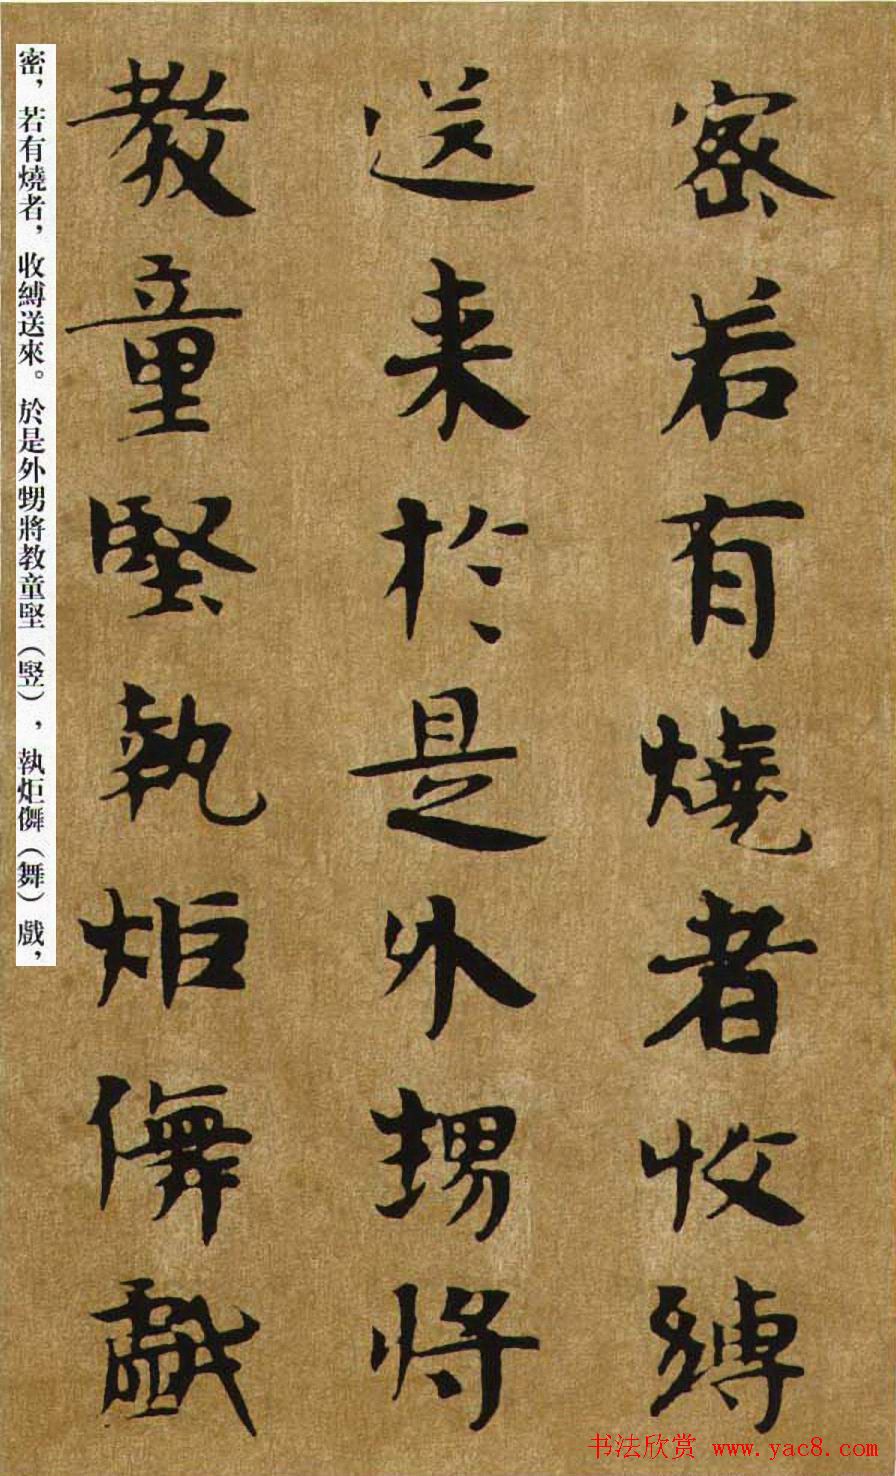 密若有燒者收縛
送来於是外甥将
教童堅執炬儛戲
密，若有燒者，收縛送來。於是外甥將教童堅（竪），執炬儛（舞）戲，
书法欣赏 www.yac8.com